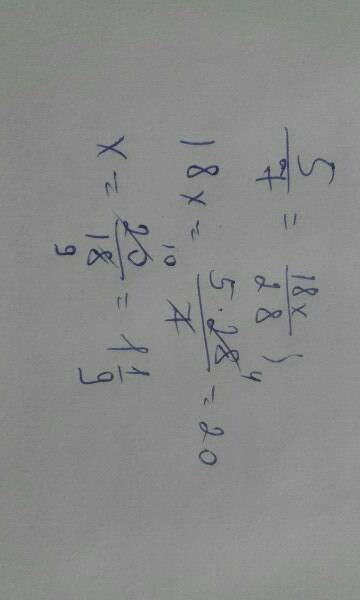 5/7 = 18x/28 ;
18x = 5·28/7 = 20 4
x = 20/18 = 1 1/9 10 9